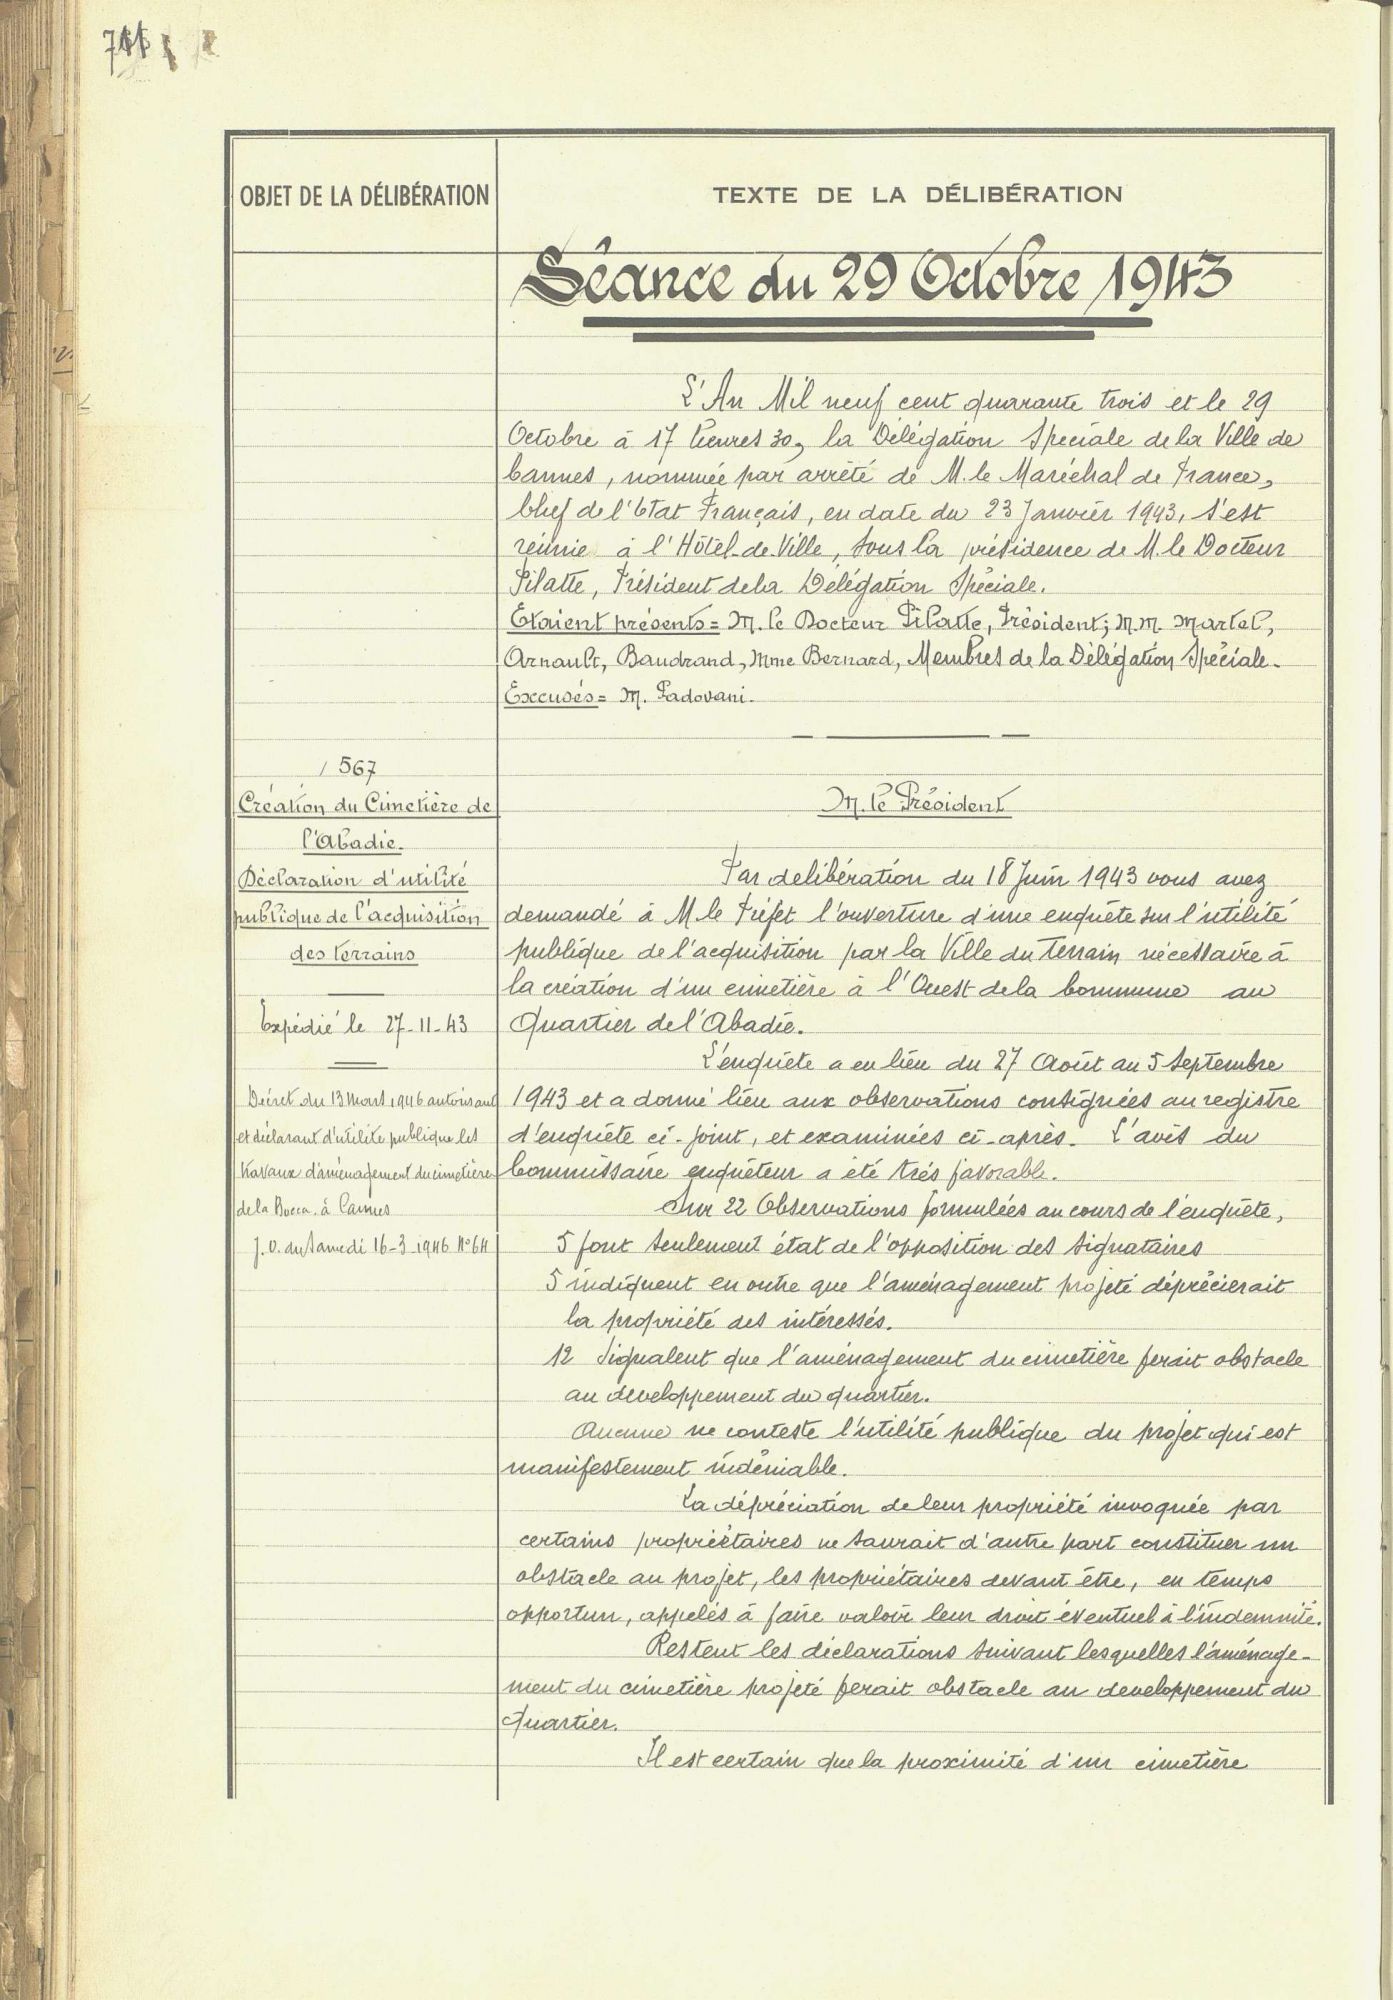 OBJET DE LA DÉLIBÉRATION
TEXTE DE LA DÉLIBÉRATION
Séance du 29 Octobre 1943
L'An Mil neuf cent quarante trois et le 29
Octobre à 17 heures 30, la Délégation Spéciale de la Ville de
Cannes, nommée par arrêté de M. le Maréchal de France,
Chef de l'Etat Français, en date du 23 Janvier 1943, s'est
réunie à l'Hôtel-de-Ville, sous la présidence de M. le Docteur
Pilatte, Président de la Délégation Spéciale.
Etaient présents = M. le Docteur Pilatte, Président; M.M. Martel,
Arnault, Baudrand, Mme Bernard, Membres de la Délégation Spéciale.
Excusés = M. Padovani.
567
Création du Cimetière de
l'Abadie.
Déclaration d'utilité
publique de l'acquisition
des terrains
Expédié le 27-11-43
Décret du 13 Mars 1946 autorisant
et déclarant d'utilité publique les
travaux d'aménagement du cimetière
de la Bocca à Cannes
J.O. du Samedi 16-3-1946 N° 64
M. le Président
Par délibération du 18 Juin 1943 vous avez
demandé à M le Préfet l'ouverture d'une enquête sur l'utilité
publique de l'acquisition par la Ville du terrain nécessaire à
la création d'un cimetière à l'Ouest de la Commune au
Quartier de l'Abadie.
L'enquête a eu lieu du 27 Août au 5 Septembre
1943 et a donné lieu aux observations consignées au registre
d'enquête ci-joint, et examinées ci-après. L'avis du
Commissaire enquêteur a été très favorable.
Sur 22 Observations formulées au cours de l'enquête,
5 font seulement état de l'opposition des signataires
5 indiquent en outre que l'aménagement projeté déprécierait
la propriété des intéressés.
12 signalent que l'aménagement du cimetière ferait obstacle
au développement du quartier.
Aucune ne conteste l'utilité publique du projet qui est
manifestement indéniable.
La dépréciation de leur propriété invoquée par
certains propriétaires ne saurait d'autre part constituer un
obstacle au projet, les propriétaires devant être, en temps
opportun, appelés à faire valoir leur droit éventuel à l'indemnité.
Restent les déclarations suivant lesquelles l'aménage-
ment du cimetière projeté ferait obstacle au développement du
quartier.
Il est certain que la proximité d'un cimetière